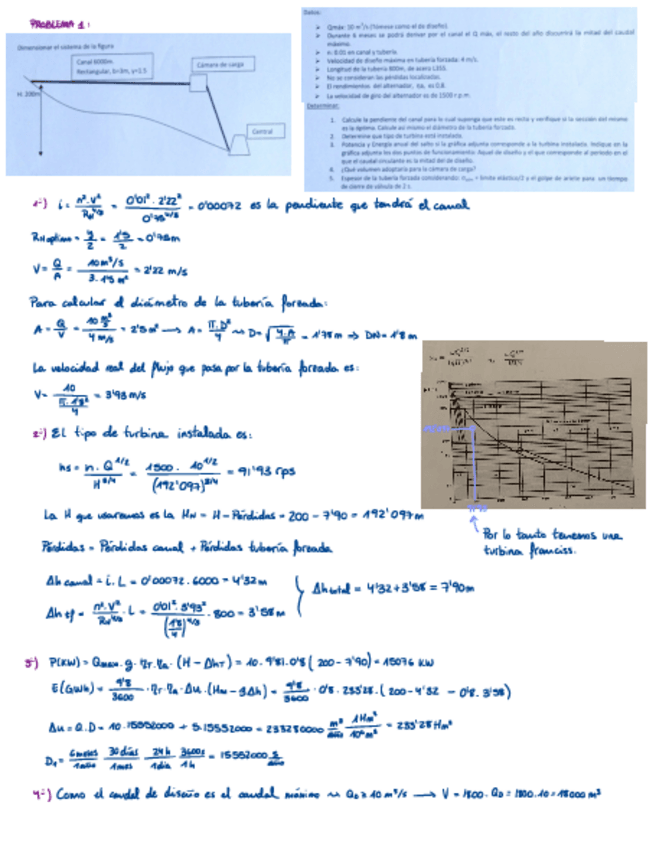 PROBLEMA 1:
Dimensionar el sistema de la figura
Canal 6000m.
Rectangular, b=3m, y=1.5
Cámara de carga
H: 200m
Central
Datos:
Qmáx: 10 m³/s (Tómese como el de diseño).
Durante 6 meses se podrá derivar por el canal el Q máx, el resto del año discurrirá la mitad del caudal máximo.
n: 0.01 en canal y tubería.
Velocidad de diseño máximo en tubería forzada: 4 m/s.
Longitud de la tubería 800m, de acero L355.
No se consideran las pérdidas localizadas.
El rendimiento del alternador, es 0.8.
La velocidad de giro del alternador es de 1500 r.p.m.
Determinar:
1. Calcule la pendiente del canal para lo cual suponga que este es recta y verifique si la sección del mismo es la óptima. Calcule así mismo el diámetro de la tubería forzada.
2. Determine que tipo de turbina está instalada.
3. Potencia y Energía anual del salto si la gráfica adjunta corresponde a la turbina instalada. Indique en la gráfica adjunta los dos puntos de funcionamiento: Aquel de diseño y el que corresponde al periodo en el que el caudal circulante es la mitad del de diseño.
4. ¿Qué volumen adoptaría para la cámara de carga?
5. Espesor de la tubería forzada considerando: = límite elástico/2 y el golpe de ariete para un tiempo de cierre de válvula de 2 s.
1-) i = n²·V² / RH^4/3 = 0'01²·2'22² / 0'75^4/3 = 0'00072 es la pendiente que tendrá el canal
RH óptimo = y/2 = 1'5/2 = 0'75m
V = Q/A = 10m³/s / 3·1'5 m² = 2'22 m/s
Para calcular el diámetro de la tubería forzada:
A = Q/V = 10 m³/s / 4 m/s = 2'5m² → A = π·D²/4 → D = √(4·A/π) = 1'78m ⇒ DN = 1'8m
La velocidad real del flujo que pasa por la tubería forzada es:
V = 10 / (π·1'8²/4) = 3'93 m/s
2-) El tipo de turbina instalada es:
ns = n·Q^1/2 / H^3/4 = 1500·10^1/2 / (192'097)^3/4 = 91'93 rps
La H que usaremos es la HN = H - Pérdidas = 200 - 7'90 = 192'097m
Por lo tanto tenemos una
turbina franciss.
Pérdidas = Pérdidas canal + Pérdidas tubería forzada
Δh canal = i·L = 0'00072·6000 = 4'32m
Δh total = 4'32 + 3'58 = 7'90m
Δh tf = n²·V² / RH^4/3 · L = 0'01²·3'93² / (1'8/4)^4/3 · 800 = 3'58m
3-) P(KW) = Qmax·g·ηT·ηa·(H - ΔhT) = 10·9'81·0'8(200 - 7'90) = 15076 KW
E(GWh) = 9'8/3600 · ηT·ηa·Δu·(HN - ΣΔh) = 9'8/3600 · 0'8·233'28·(200 - 4'32 - 0'8·3'58)
Δu = Q·D = 10·15552000 + 5·15552000 = 233280000 m³/año · 1Hm³/10⁶m³ = 233'28Hm³
D1 = 6 meses/1 año · 30 días/1 mes · 24h/1 día · 3600s/1h = 15552000 s/año
4-) Como el caudal de diseño es el caudal máximo → QD = 10 m³/s → V = 1800·QD = 1800·10 = 18000 m³